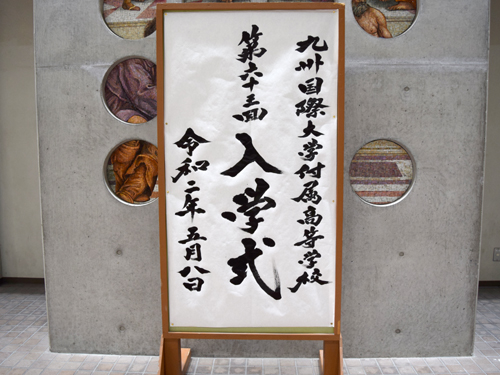 九州国際大学付属高等学校
第六十三回
入学式
令和二年五月八日